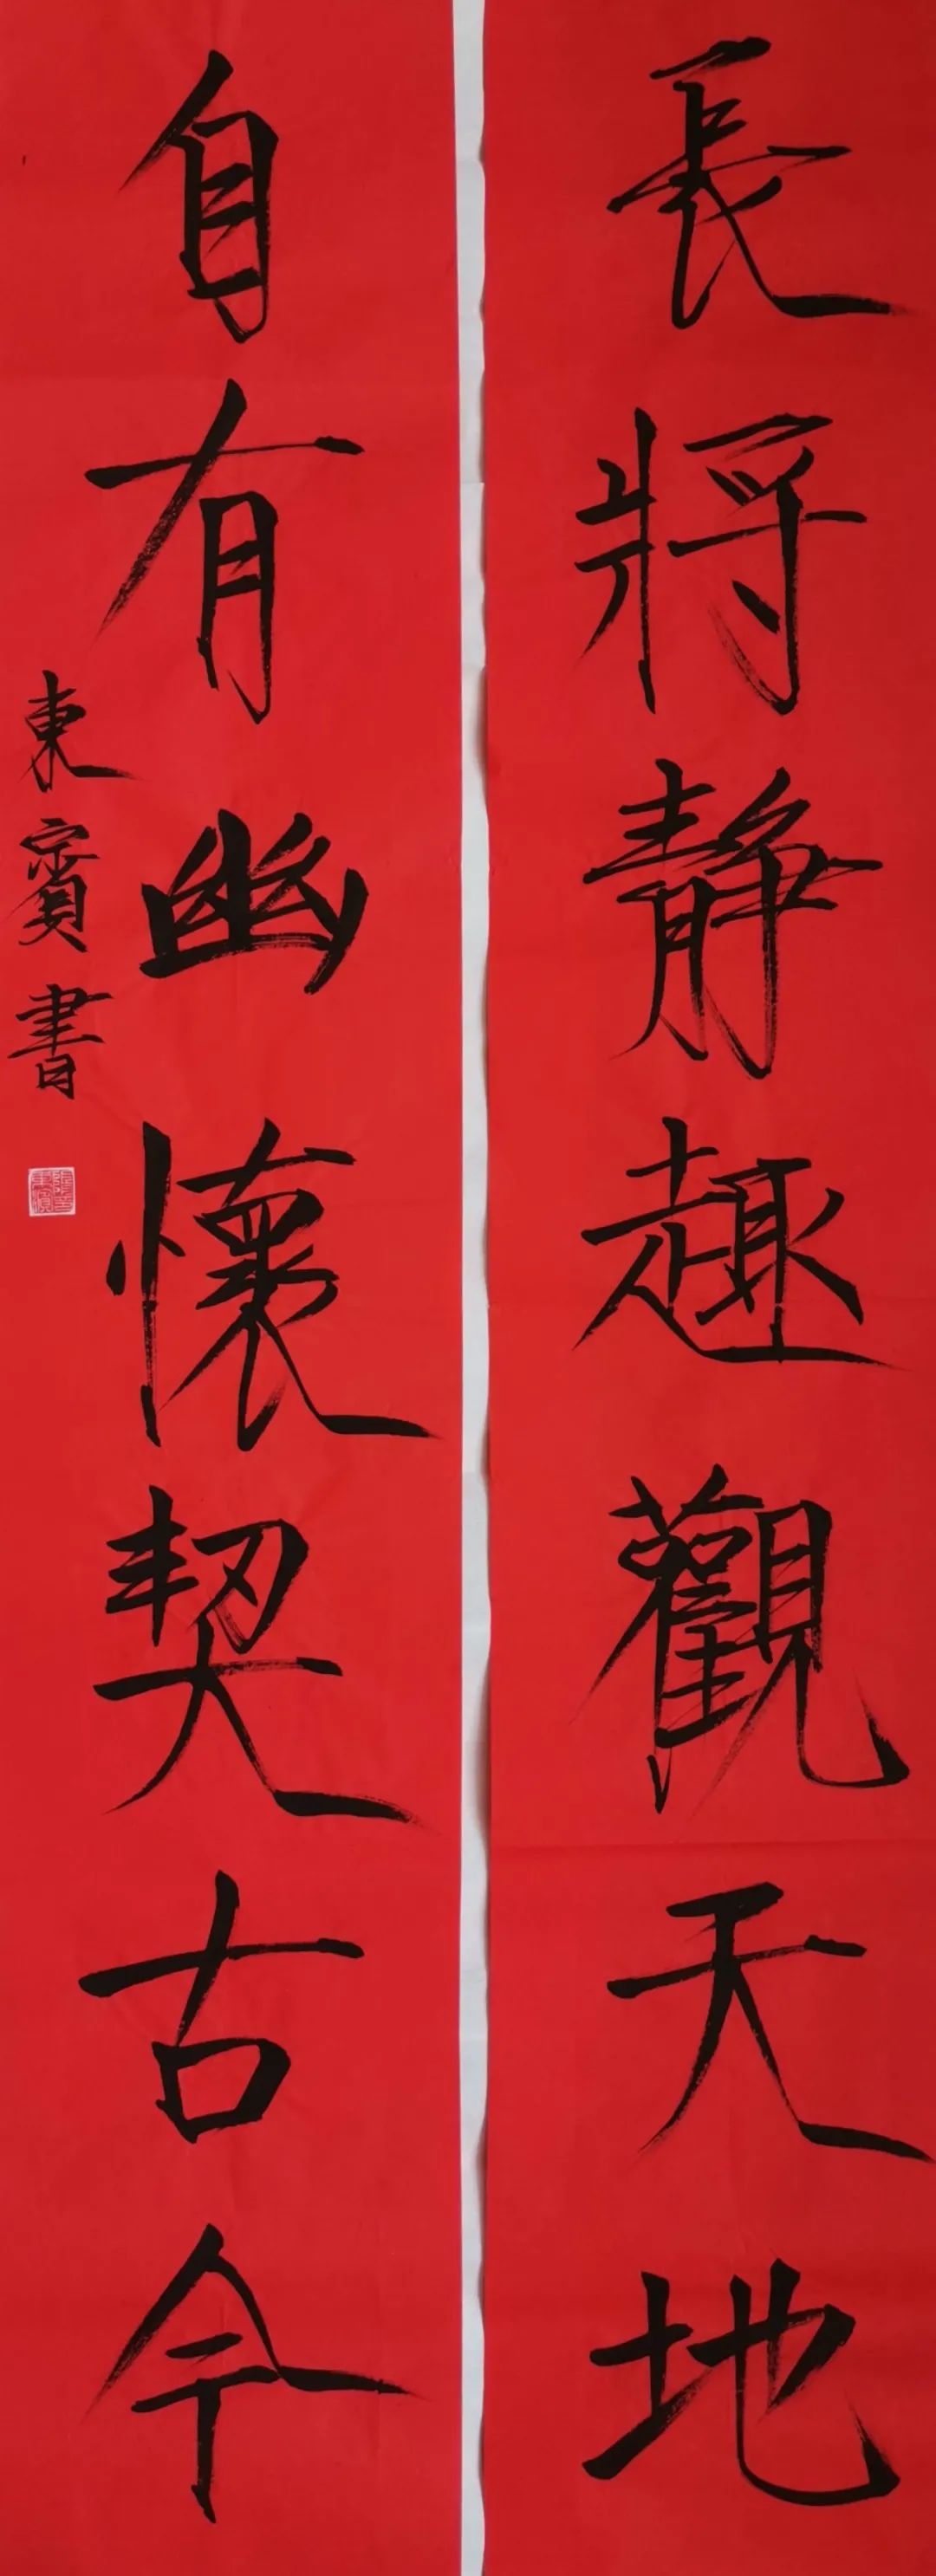 長將靜趣觀天地
自有幽懷契古今
東賓書